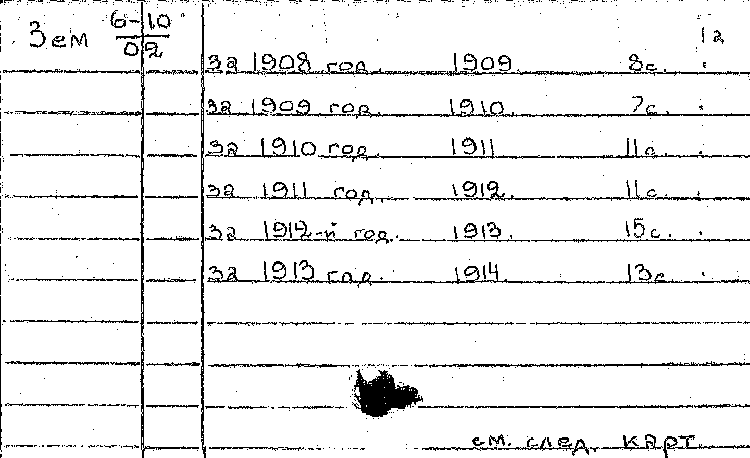 Зем 6-10 1а
02
за 1908 год. 1909. 8с.
за 1909 год. 1910. 7с.
за 1910 год. 1911 11с.
за 1911 год. 1912. 11с.
за 1912-й год. 1913. 15с.
за 1913 год. 1914 13с.
см. след. карт.